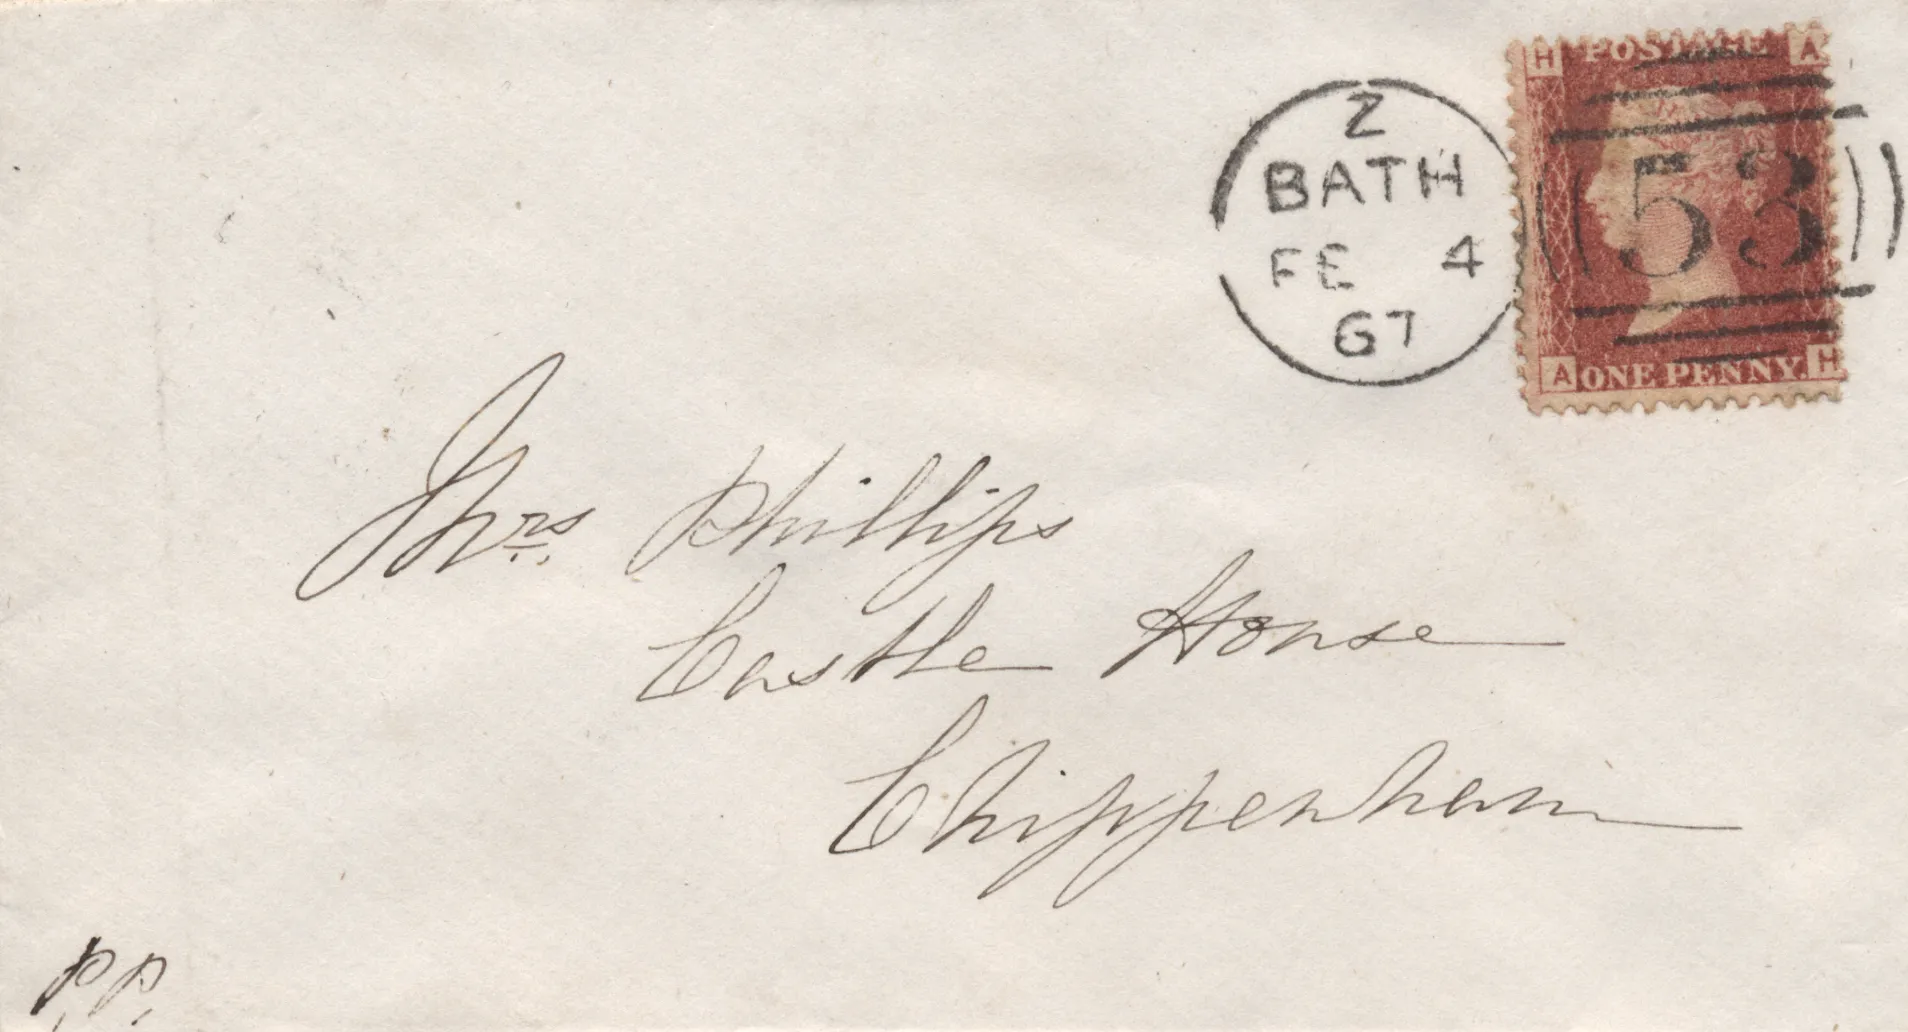 H POSTAGE A
Z
BATH
FE 4
67
53
A ONE PENNY. H
Mrs Phillips
Castle House
Chippenham
P.P.